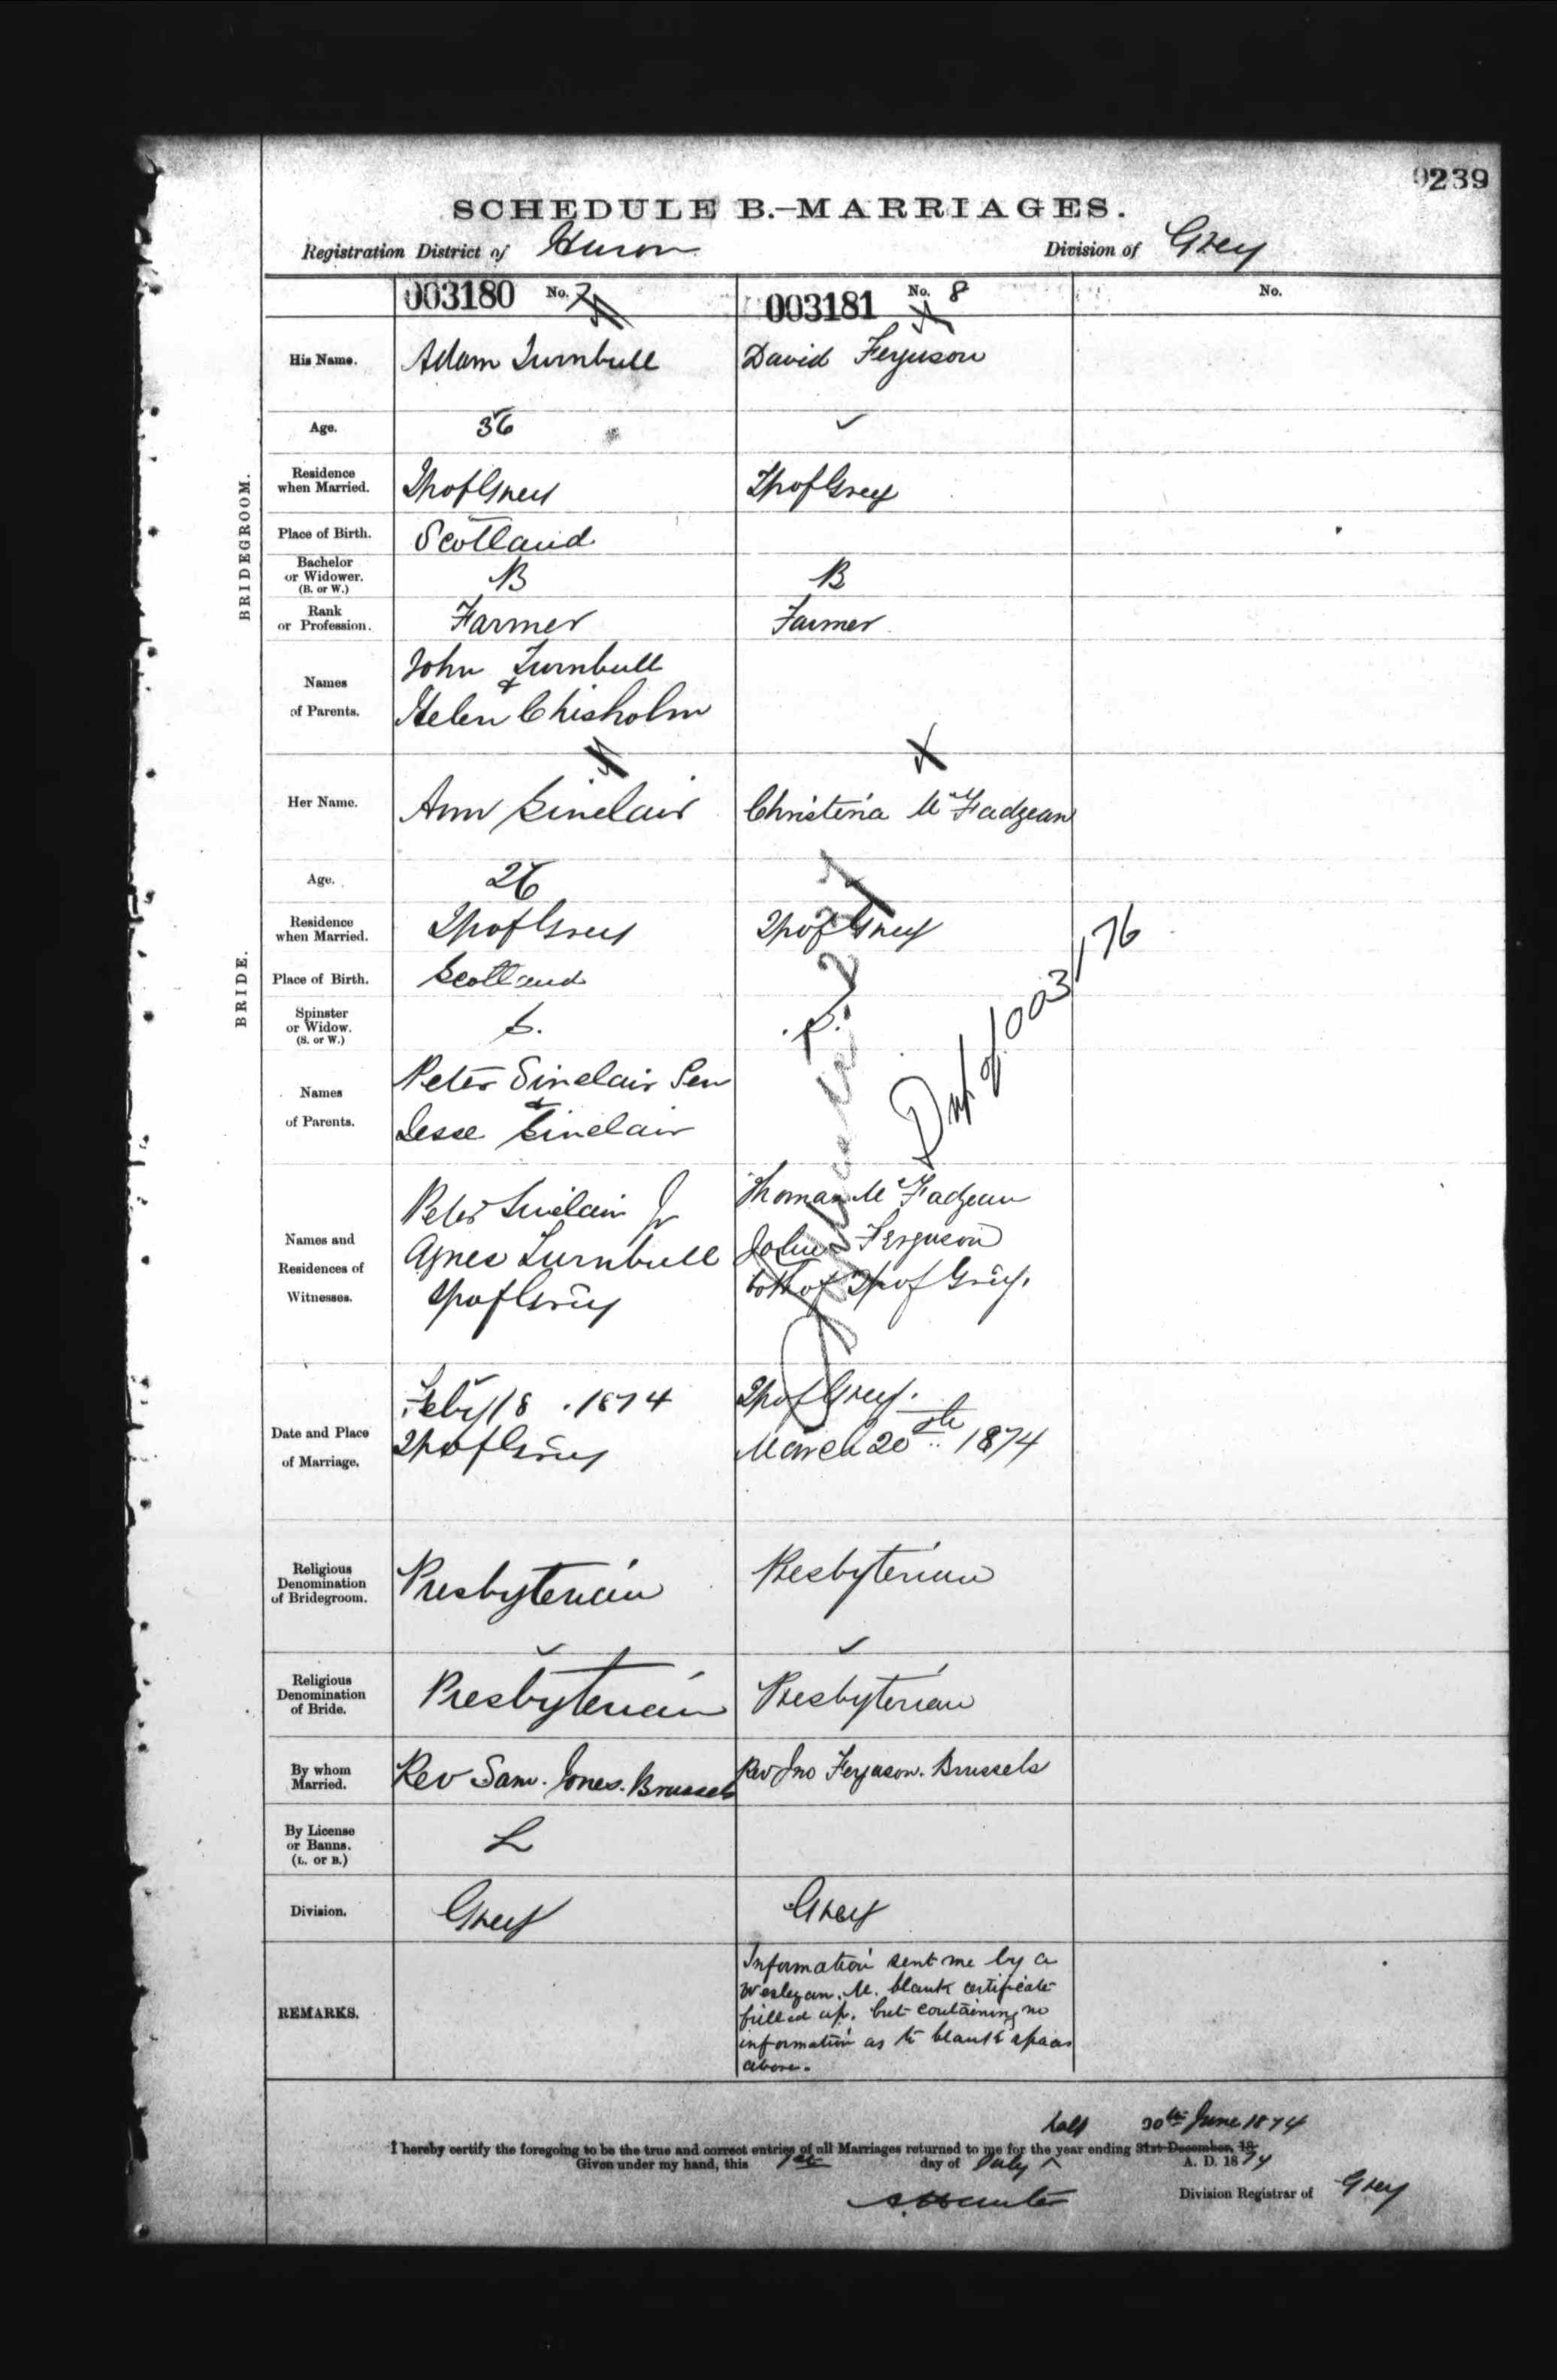 0239
SCHEDULE B.—MARRIAGES.
Registration District of Huron Division of Grey
003180 No. 7 003181 No. 8 No.
BRIDEGROOM.
His Name. Adam Turnbull David Ferguson
Age. 36
Residence when Married. Tp of Grey Tp of Grey
Place of Birth. Scotland
Bachelor or Widower. (B. or W.) B B
Rank or Profession. Farmer Farmer
Names of Parents. John Turnbull
&
Helen Chisholm
BRIDE.
Her Name. Ann Sinclair Christina McFadzean
Age. 26
Residence when Married. Tp of Grey Tp of Grey
Place of Birth. Scotland
Spinster or Widow. (S. or W.) S. S.
Names of Parents. Peter Sinclair Sen
&
Jesse Sinclair
Dup of 003176
Names and Residences of Witnesses. Peter Sinclair Jr Thomas McFadzean
Agnes Turnbull John Ferguson
Tp of Grey both of Tp of Grey.
Date and Place of Marriage. Feby 18. 1874 Tp of Grey.
Tp of Grey March 20th 1874
Religious Denomination of Bridegroom. Presbyterian Presbyterian
Religious Denomination of Bride. Presbyterian Presbyterian
By whom Married. Rev Sam. Jones. Brussels Rev Jno Ferguson. Brussels
By License or Banns. (L. or B.) L
Division. Grey Grey
REMARKS. Information sent me by a
Wesleyan. M. blank certificate
filled up. but containing no
information as to blank spaces
above.
half 30th June 1874
I hereby certify the foregoing to be the true and correct entries of all Marriages returned to me for the year ending 31st December, 18
Given under my hand, this 1st day of July A. D. 1874
A. Hunter Division Registrar of Grey